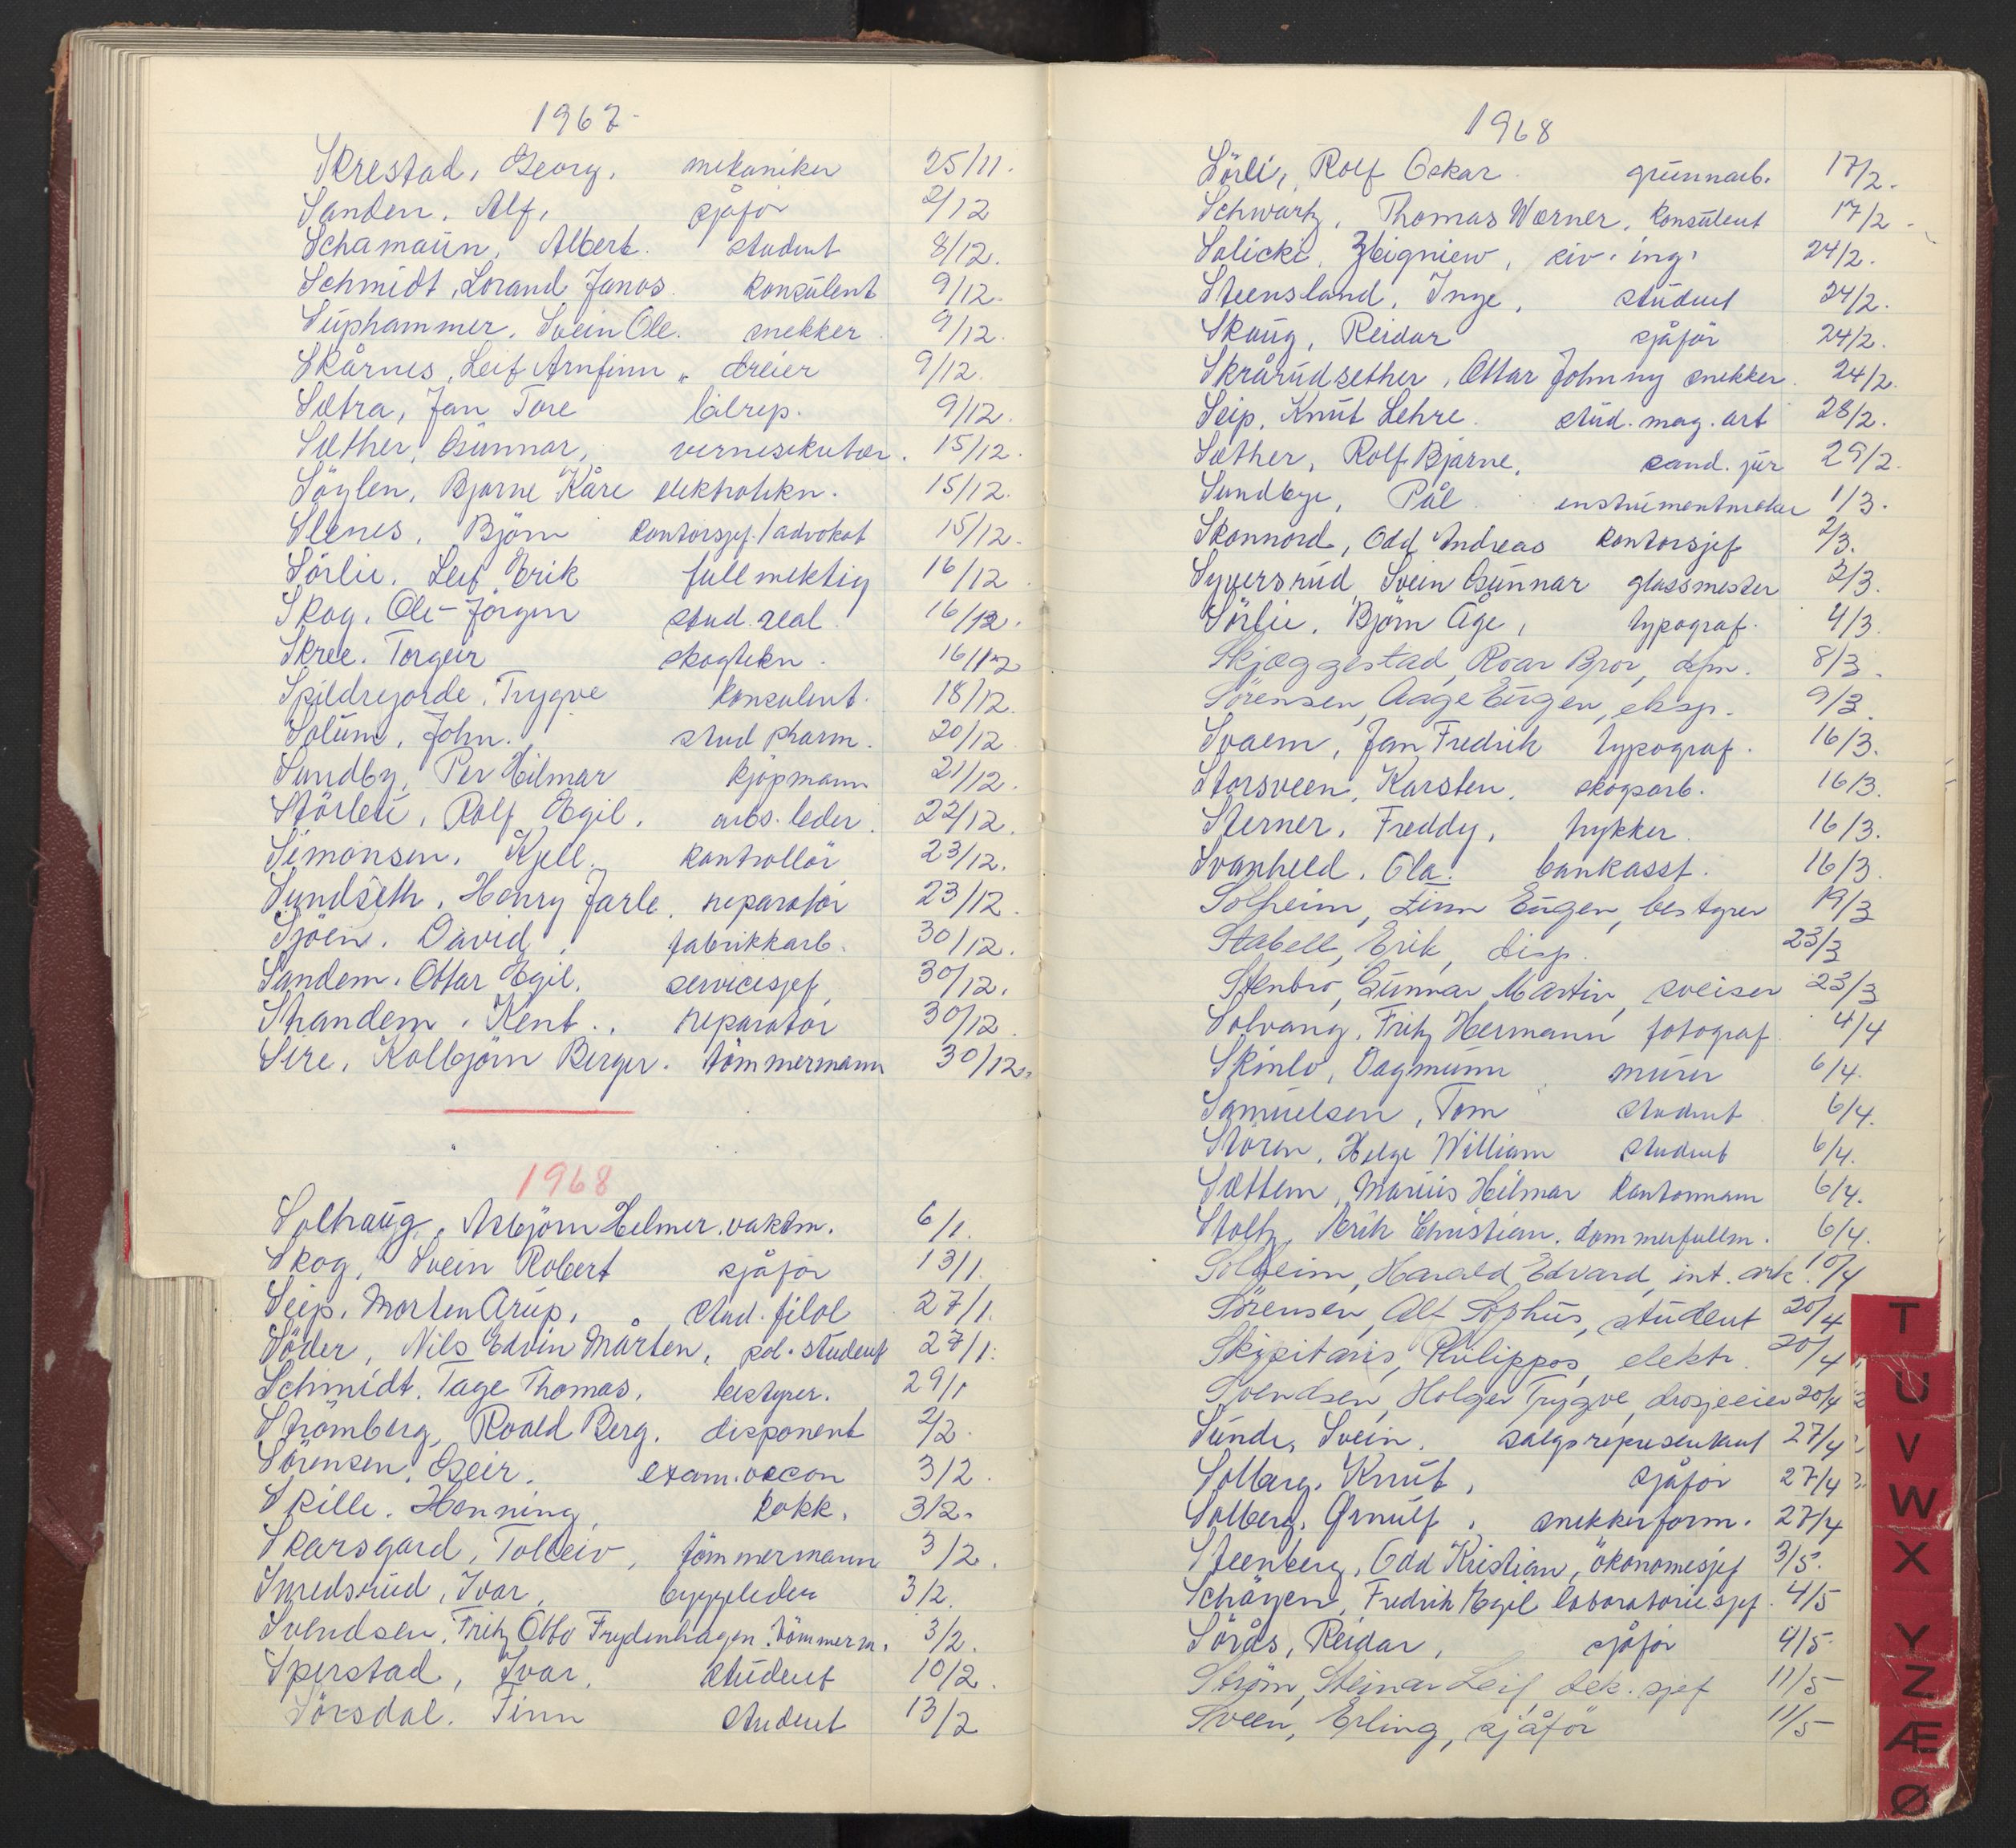 1967
Skrestad, Georg, mekaniker 25/11.
Sanden, Alf, sjåför 2/12
Schamaun, Albert. student 8/12.
Schmidt, Lorand Janos. konsulent 9/12.
Suphammer, Svein Ole. snekker 9/12.
Skårnes, Leif Arnfinn dreier 9/12.
Sætra, Jan Tore bilrep. 9/12.
Sæther, Gunnar, 15/12.
Söylen, Bjarne Kåre elektrotekn. 15/12.
Slenes, Björn kontorsjef/advokat 15/12.
Sörlie, Leif Erik fullmektig 16/12
Skog, Ole-Jörgen stud. real. 16/12.
Skree, Torgeir skogtekn. 16/12
Spildrejorde, Trygve konsulent. 18/12.
Solum, John. stud pharm. 20/12
Sundby, Per Hilmar kjöpmann 21/12.
Störlei, Rolf Egil, arbs. leder. 22/12.
Simonsen, Kjell. kontrollör 23/12.
Sundseth, Henry Jarle, reparatör 23/12.
Sjöen, David, fabrikkarb. 30/12.
Sandem, Ottar Egil, servicesjef, 30/12.
Strandem, Kent., reparatör 30/12.
Sire, Kolbjörn Berger. tömmermann 30/12.
1968
Solhaug, Asbjörn Helmer. vaktm. 6/1.
Skog, Svein Robert sjåför 13/1.
Seip, Morten Arup, stud. filol 27/1.
Söder, Nils Edvin Mårten, pol. student 27/1.
Schmidt, Tage Thomas, bestyrer. 29/1
Strömberg, Roald Berg. disponent 2/2.
Sörensen, Geir. exam. oecon 3/2.
Skille, Henning, kokk. 3/2.
Skarsgard, Tolleiv, tömmermann 3/2.
Smedsrud, Ivar, byggleder 3/2.
Svendsen, Fritz Otto Frydenhagen. tömmerm. 3/2.
Sperstad, Ivar, student 10/2.
Sörsdal, Finn student 13/2
1968
Sörli, Rolf Oskar. grunnarb. 17/2.
Schwartz, Thomas Wærner, konsulent 17/2.
Solicki, Zbigniew, siv. ing. 24/2.
Steensland, Inge, student 24/2.
Skaug, Reidar sjåför 24/2.
Skrårudsether, Ottar Johnny snekker. 24/2.
Seip, Knut Lehre. stud. mag. art 28/2.
Sæther, Rolf Bjarne, cand. jur 29/2.
Sundbye, Pål instrumentmaker 1/3.
Skonnord, Odd Andreas kontorsjef 2/3.
Syversrud, Svein Gunnar glassmester 2/3.
Sörlie, Björn Åge, typograf. 4/3.
Skjæggestad, Roar Bror, 8/3.
Sörensen, Aage Eugen, eksp. 9/3.
Svaem, Jan Fredrik typograf. 16/3.
Storsveen, Karsten, skogsarb. 16/3.
Sterner, Freddy, trykker 16/3.
Svanheld, Ola. bankasst. 16/3.
Solheim, Finn Eugen, bestyrer 19/3
Stabell, Erik, disp. 23/3
Stenbro, Gunnar Martin, sveiser 23/3
Solvang, Fritz Hermann fotograf. 4/4
Skinlo, Dagmunn murer 6/4.
Samuelsen, Tom student 6/4.
Stören, Helge William student 6/4.
Sættem, Marius Hilmar kontormann 6/4.
Stoltz, Erik Christian. dommerfullm. 6/4.
Solheim, Harald Edvard, int. ark. 10/4
Sörensen, Alf Sophus, student 20/4
Skipitaris, Philippos, elektr. 20/4
Svendsen, Holger Trygve, drosjeeier 20/4
Sunde, Svein, salgsrepresentant 27/4
Solberg, Knut, sjåför 27/4
Solberg, Ørnulf, snekkerform. 27/4
Steenberg, Odd Kristian, ökonomisjef 3/5.
Schöyen, Fredrik Egil laboratoriesjef. 4/5
Sörås, Reidar, sjåför 4/5.
Ström, Steinar Leif, sek. sjef 11/5
Sveen, Erling, sjåför 11/5
T
U
V
W
X
Y
Z
Æ
Ø